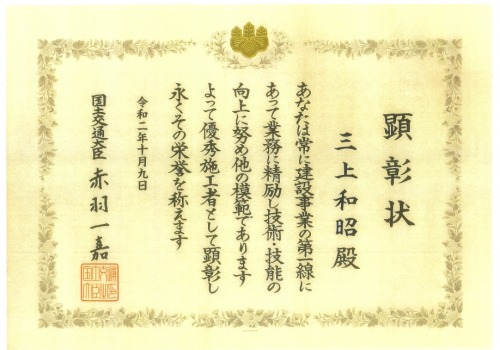 顕彰状
三上和昭殿
あなたは常に建設事業の第一線に
あって業務に精励し技術・技能の
向上に努め他の模範であります
よって優秀施工者として顕彰し
永くその栄誉を称えます
令和二年十月九日
国土交通大臣 赤羽一嘉